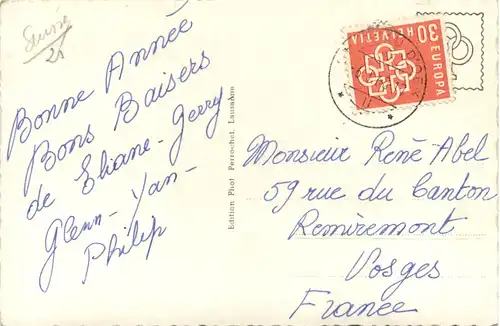 Suisse
Bonne Année
Bons Baisers
de Eliane - Gerry
Glenn - Yan -
Philip
Edition Phot Perrochet, Lausanne
30
HELVETIA
EUROPA
Monsieur René Abel
59 rue du Canton
Remiremont
Vosges
France